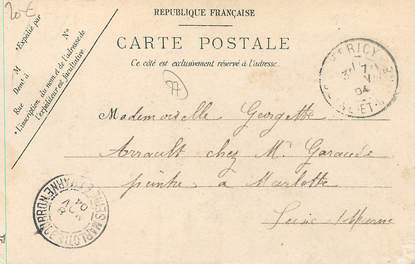 20€
RÉPUBLIQUE FRANÇAISE
CARTE POSTALE
Ce côté est exclusivement réservé à l'adresse.
*Expédié par
N°
M
Demt à
Rue
*L'inscription du nom et de l'adresse de
l'expéditeur est facultative.
77
HERICY
04
Mademoiselle Georgette
Arrault chez Mr Garaude
peintre à Marlotte
Seine & Marne
BOURRON MARLOTTE
SEINE ET MARNE
04